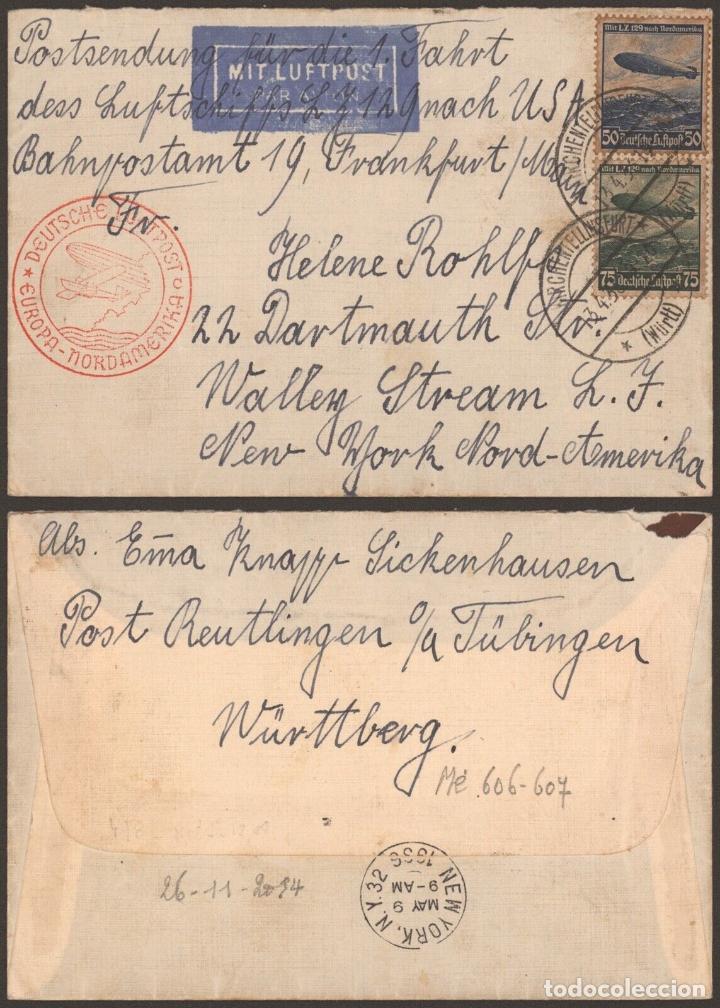 Postsendung für die 1. Fahrt
dess Luftschiffs L Z 129 nach USA
Bahnpostamt 19, Frankfurt/Main
MIT LUFTPOST
PAR AVION
Mit LZ 129 nach Nordamerika
50 Deutsche Luftpost 50
Mit LZ 129 nach Nordamerika
75 Deutsche Luftpost 75
KIRCHENTELLINSFURT
(Württ)
KIRCHENTELLINSFURT
(Württ)
DEUTSCHE LUFTPOST
EUROPA-NORDAMERIKA
Fr.
Helene Rohlf
22 Dartmouth Str.
Walley Stream L. J.
New York Nord-Amerika
Abs. Emma Knapp Sickenhausen
Post Reutlingen o/a Tübingen
Württberg.
Mé 606-607
26-11-2014
NEW YORK, N.Y. 32
MAY 9
9-AM
1936
todocoleccion